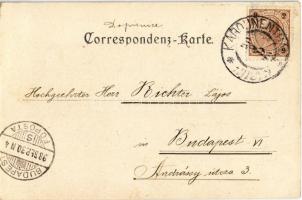 Correspondenz-Karte.
KAROLINENTHAL
Hochgelehrter Herr Richter Lajos
in Budapest VI
Andrássy utcza 3.
BUDAPEST
FŐPOSTA